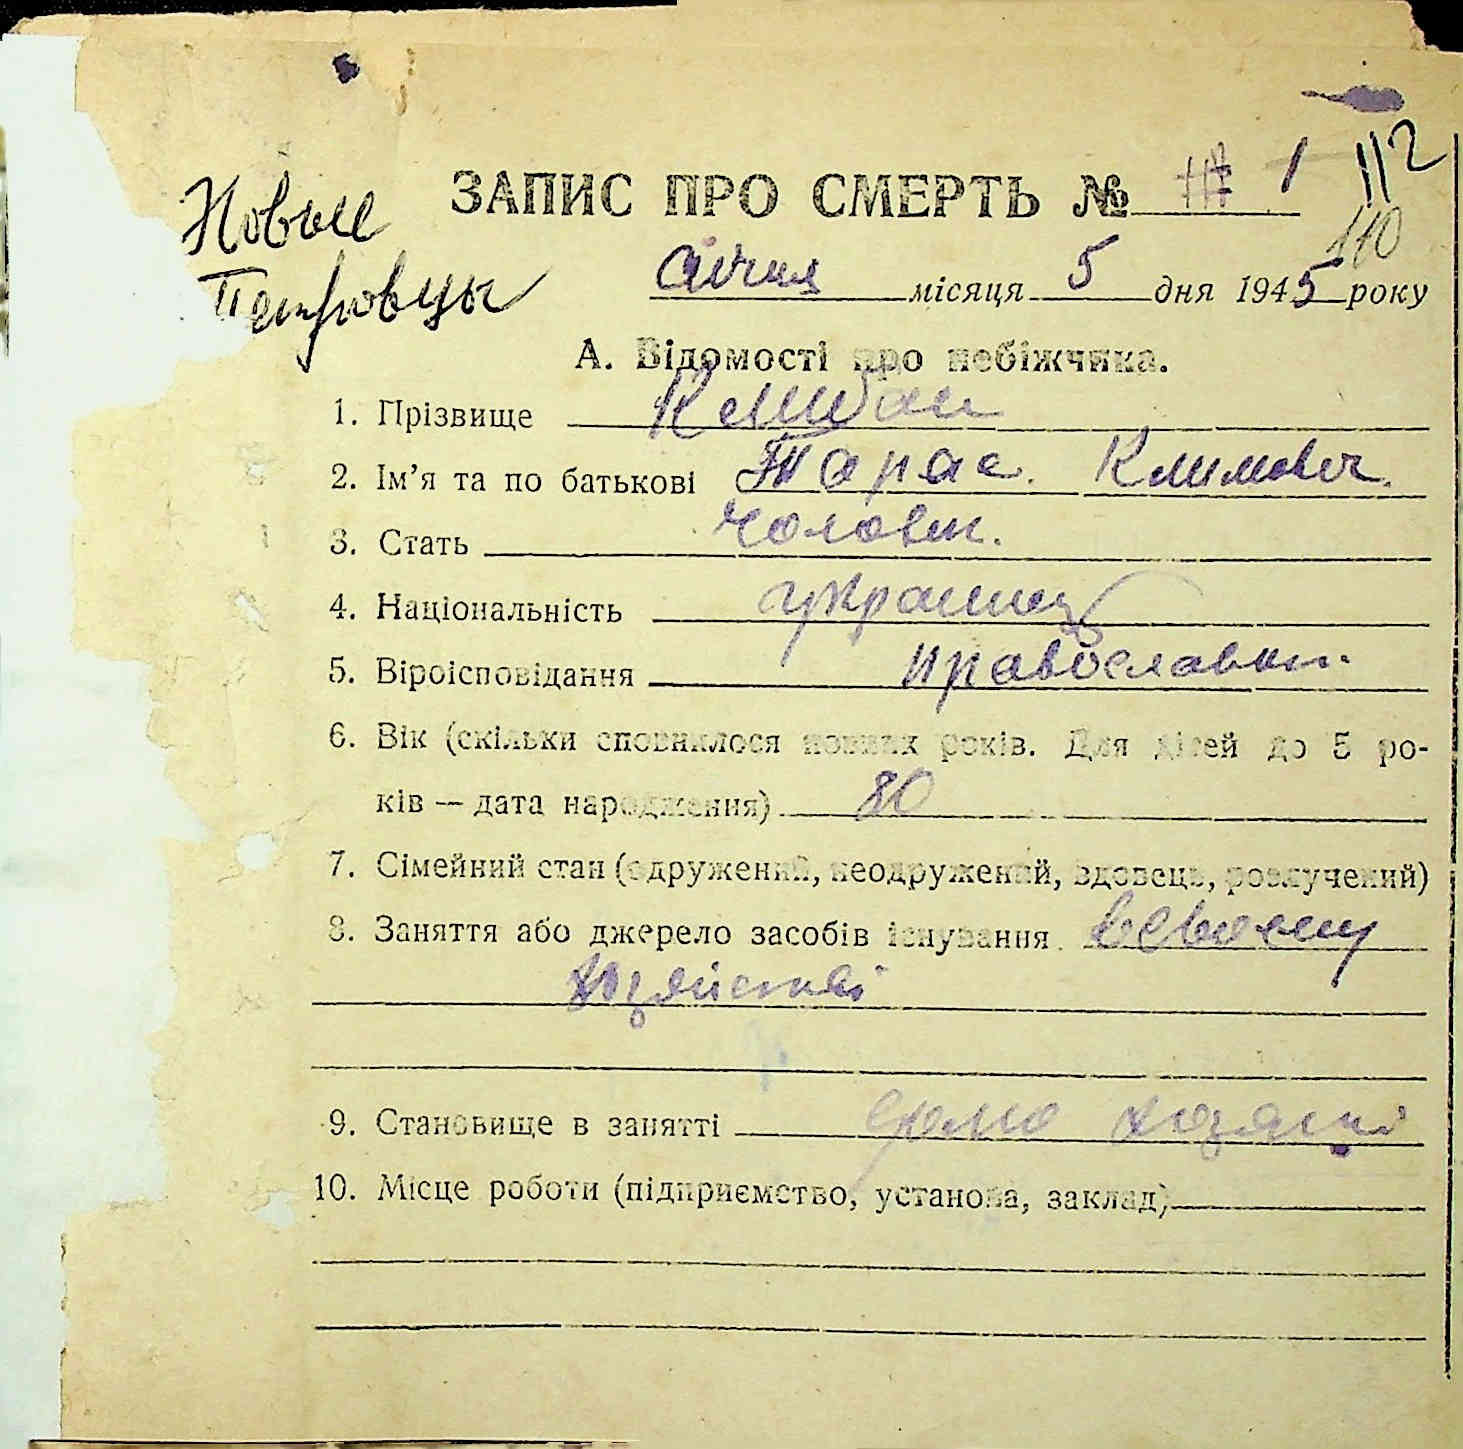 112
ЗАПИС ПРО СМЕРТЬ № 1
110
Новые
Петровцы
січня місяця 5 дня 1945 року
А. Відомості про небіжчика.
1. Прізвище
2. Ім'я та по батькові Тарас. Климович.
3. Стать чоловіч.
4. Національність украинец
5. Віроісповідання православн.
6. Вік (скільки сповнилося повних років. Для дітей до 5 ро-
ків — дата народження) 80
7. Сімейний стан (одружений, неодружений, вдовець, розлучений)
8. Заняття або джерело засобів існування
9. Становище в занятті
10. Місце роботи (підприємство, установа, заклад)